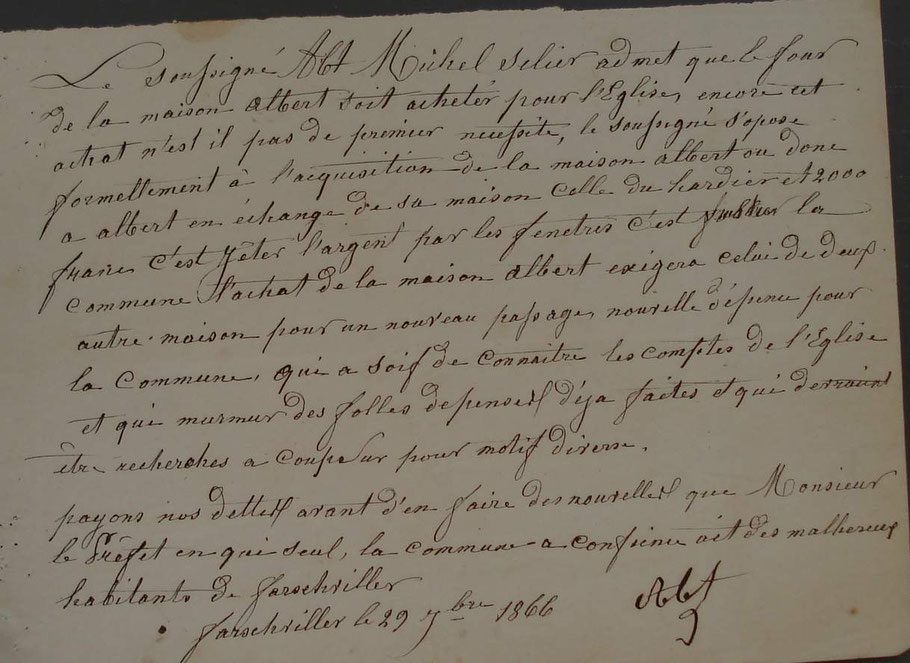 Le soussigné Abt Michel selier admet que le four
de la maison albert soit achetér pour l'Eglise, encore cet
achat n'est il pas de premier necessité, le soussigné s'opose
formettement à l'acquisition de la maison albert ou donc
a albert en échange de sa maison celle du hardier et 2000
franc c'est jéter l'argent par les fenetres c'est la
commune l'achat de la maison albert exigera celui de deux
autre maison pour un nouveau passage, nouvelle dépence pour
la commune, qui a soif de connaitre les comptes de l'Eglise
et qui murmur des folles depenses déja faites et qui devraient
être recherches a coup sur pour motif diverse.
payons nos dettes avant d'en faire des nouvelles que Monsieur
le Préfet en qui seul, la commune a confience ait des malhereux
habitants de farschviller
farschviller le 29 7bre 1866 Abt